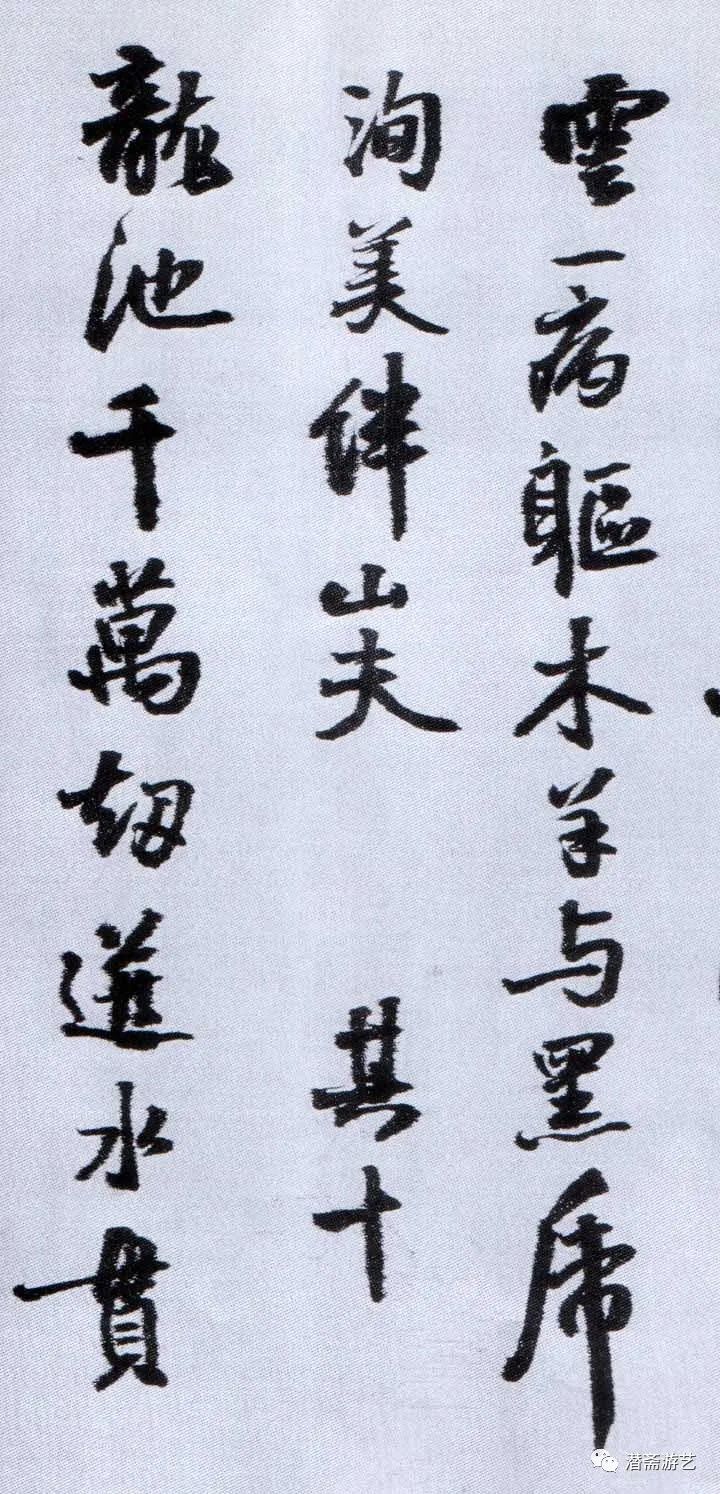 雲一病軀木羊与黑虎
洵美伴山夫 其十
龍池千萬劫蓮水貫
潜斋游艺